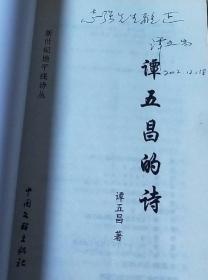 志强先生雅正
谭五昌
2012.12.18
谭五昌的诗
谭五昌 著
新世纪地平线诗丛
中国文联出版社